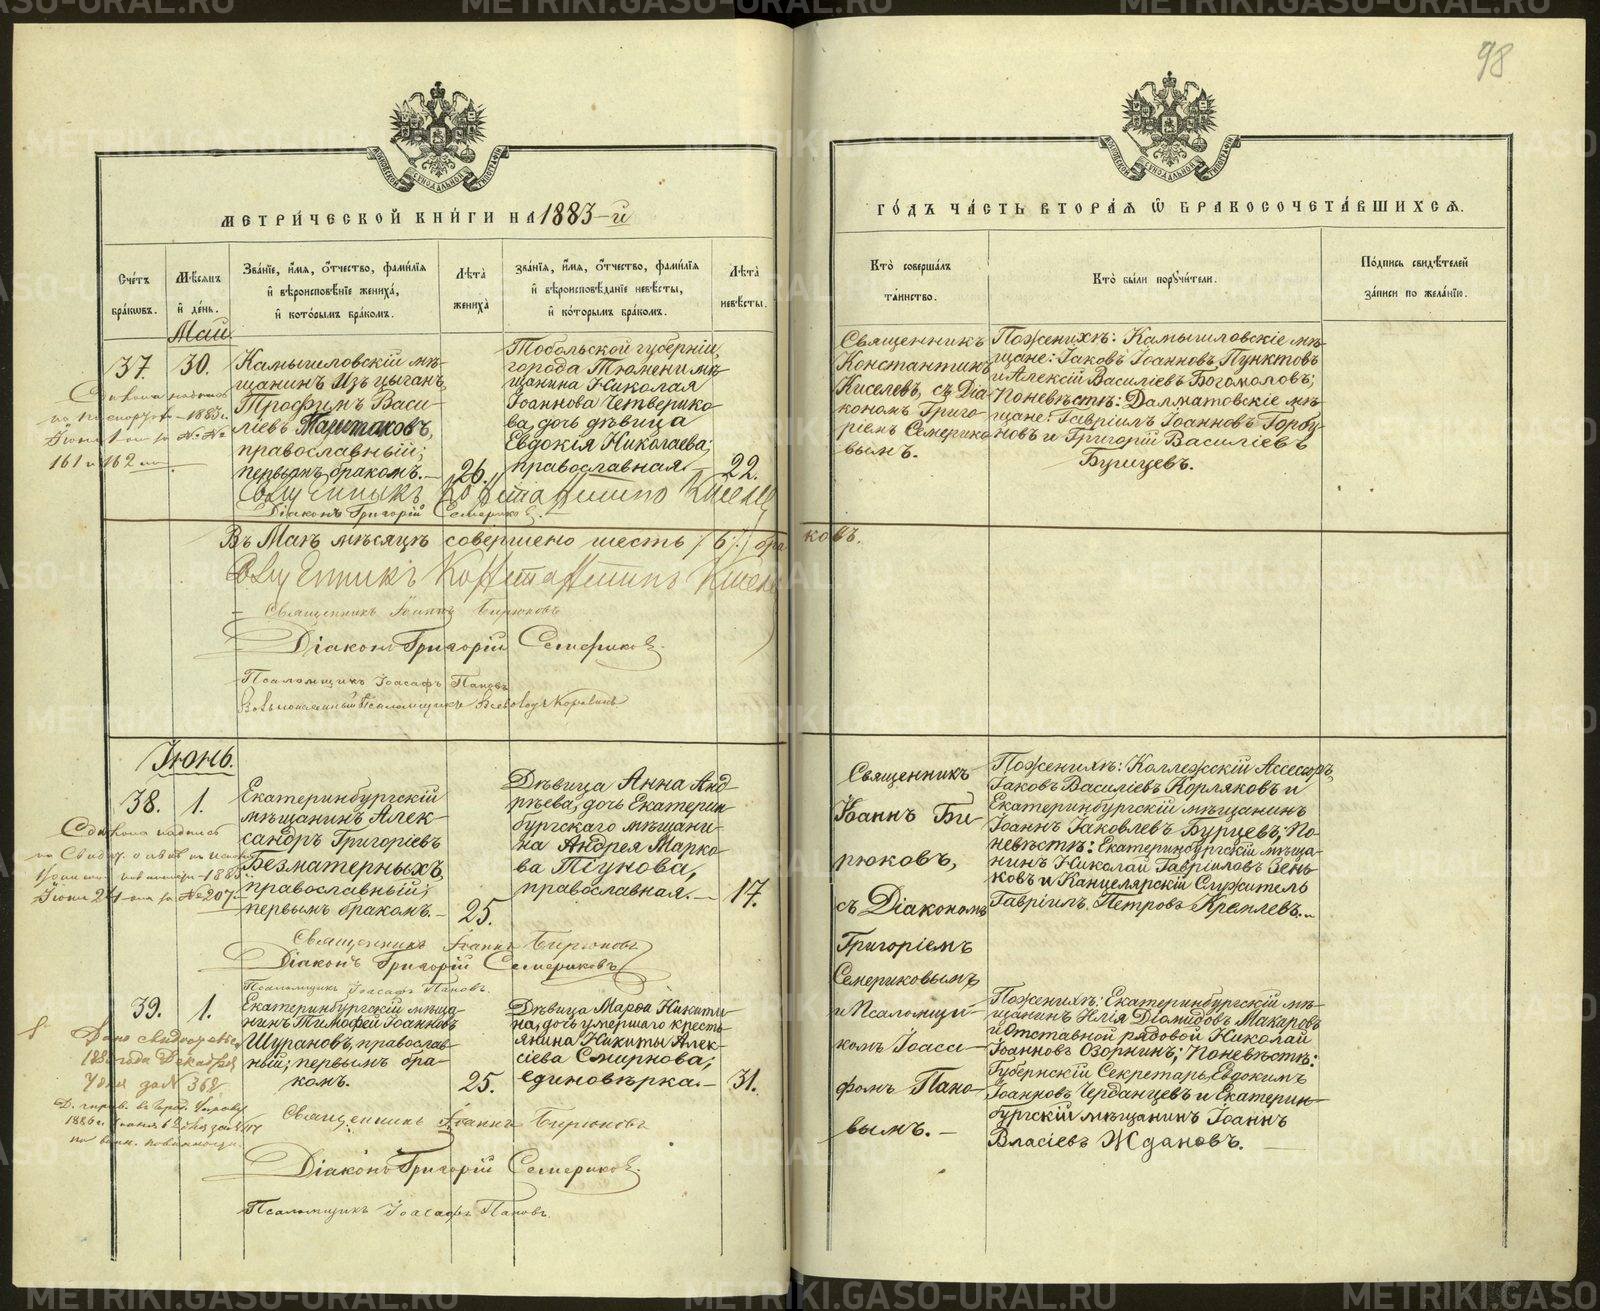 98
МЕТРИ́ЧЕСКОЙ КНИ́ГИ НА 1883-й
Сче́тъ бра́ковъ.
Мѣ́сяцъ и҆ де́нь.
Зва́нїе, и҆́мя, ѻ҆́тчество, фами́лїя
и҆ вѣроисповѣ́нїе жениха̀,
и҆ кото́рымъ бра́комъ.
Лѣта̀ жениха̀
зва́нїя, и҆́мя, ѻ҆́тчество, фами́лїя
и҆ вѣроисповѣ́данїе невѣ́сты,
и҆ кото́рымъ бра́комъ.
Лѣта̀ невѣ́сты.
Май.
37.
30.
Камышловскій мѣ-
щанинъ изъ цыганъ,
Трофимъ Васи-
ліевъ
православный;
первымъ бракомъ.-
26.
Тобольской губерніи,
города Тюмени мѣ-
щанина Николая
Іоаннова Четверико-
ва, дочь дѣвица
Евдокія Николаева;
православная.
22.
161 и 162
Священникъ Константинъ Киселев
Діаконъ Григорій Семериков.
Въ Маѣ мѣсяцѣ совершено шесть /6/ бра ковъ.
Священникъ Константинъ Киселев
Священникъ Іоаннъ Бирюковъ
Діаконъ Григорій Семериков.
Псаломщикъ Іоасафъ Пановъ
Псаломщикъ Всеволодъ Коровинъ
Іюнь.
38.
1.
Екатеринбургскій
мѣщанинъ Алек-
сандръ Григоріевъ
Безматерныхъ,
православный;
первымъ бракомъ.-
25.
Дѣвица Анна Анд-
рѣева, дочь Екатерин-
бургскаго мѣщани-
на Андрея Марко-
ва Тіунова,
православная.-
17.
Священникъ Іоаннъ Бирюковъ
Діаконъ Григорій Семериковъ
Псаломщикъ Іоасафъ Пановъ.
39.
1.
Екатеринбургскій мѣща-
нинъ Тимофей Іоанновъ
Шурановъ, православ-
ный; первымъ бра-
комъ.
25.
Дѣвица Марѳа Никити-
на, дочь умершаго кресть-
янина Никиты Алек-
сіева Смирнова;
единовѣрка.-
31.
Дано свидѣтельс.
188 года Декабря
7 дня за № 362
Священникъ Іоаннъ Бирюковъ
Діаконъ Григорій Семериков.
Псаломщикъ Іоасафъ Пановъ.
ГО́ДЪ ЧА́СТЬ ВТОРА́Я Ѡ҆ БРАКОСОЧЕТА́ВШИХСЯ.
Кто̀ соверша́лъ
та́инство.
Кто̀ бы́ли порꙋчи́тели.
По́дпись свидѣ́телей
за́писи по жела́нїю.
Священникъ
Константинъ
Киселевъ, съ Діа-
кономъ Григо-
ріемъ Семерико-
вымъ.
По женихѣ: Камышловскіе мѣ-
щане: Іаковъ Іоанновъ Пунктовъ
и Алексій Василіевъ Богомоловъ;
По невѣстѣ: Далматовскіе мѣ-
щане: Гавріилъ Іоанновъ Горбу-
новъ и Григорій Василіевъ
Бурицевъ.
Священникъ
Іоаннъ Би-
рюковъ,
съ Діакономъ
Григоріемъ
Семериковымъ
и Псаломщи-
комъ Іоаса-
фомъ Пано-
вымъ.-
По женихѣ: Коллежскій Ассесоръ
Іаковъ Василіевъ Корляковъ и
Екатеринбургскій мѣщанинъ
Іоаннъ Іаковлевъ Бурцевъ; По
невѣстѣ: Екатеринбургскій мѣща-
нинъ Николай Гавріиловъ Зень-
ковъ и Канцелярскій Служитель
Гавріилъ Петровъ Кремлевъ.
По женихѣ: Екатеринбургскій мѣ-
щанинъ Илія Діомидовъ Макаровъ
и Отставной рядовой Николай
Іоанновъ Озорнинъ; По невѣстѣ:
Губернскій Секретарь Евдокимъ
Іоанновъ Черданцевъ и Екатерин-
бургскій мѣщанинъ Іоаннъ
Власіевъ Ждановъ.
METRIKI.GASO-URAL.RU